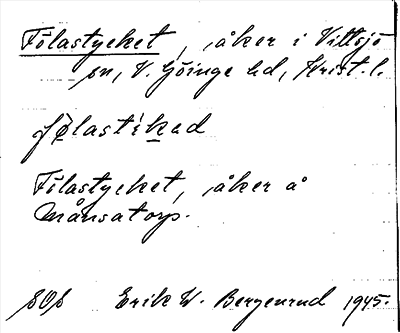 Fölastycket, åker i Vittsjö
sn, V. Göinge hd, Krist. l.
Fölastycket, åker å
Månsatorp.
Erik W. Bergenrud 1945.